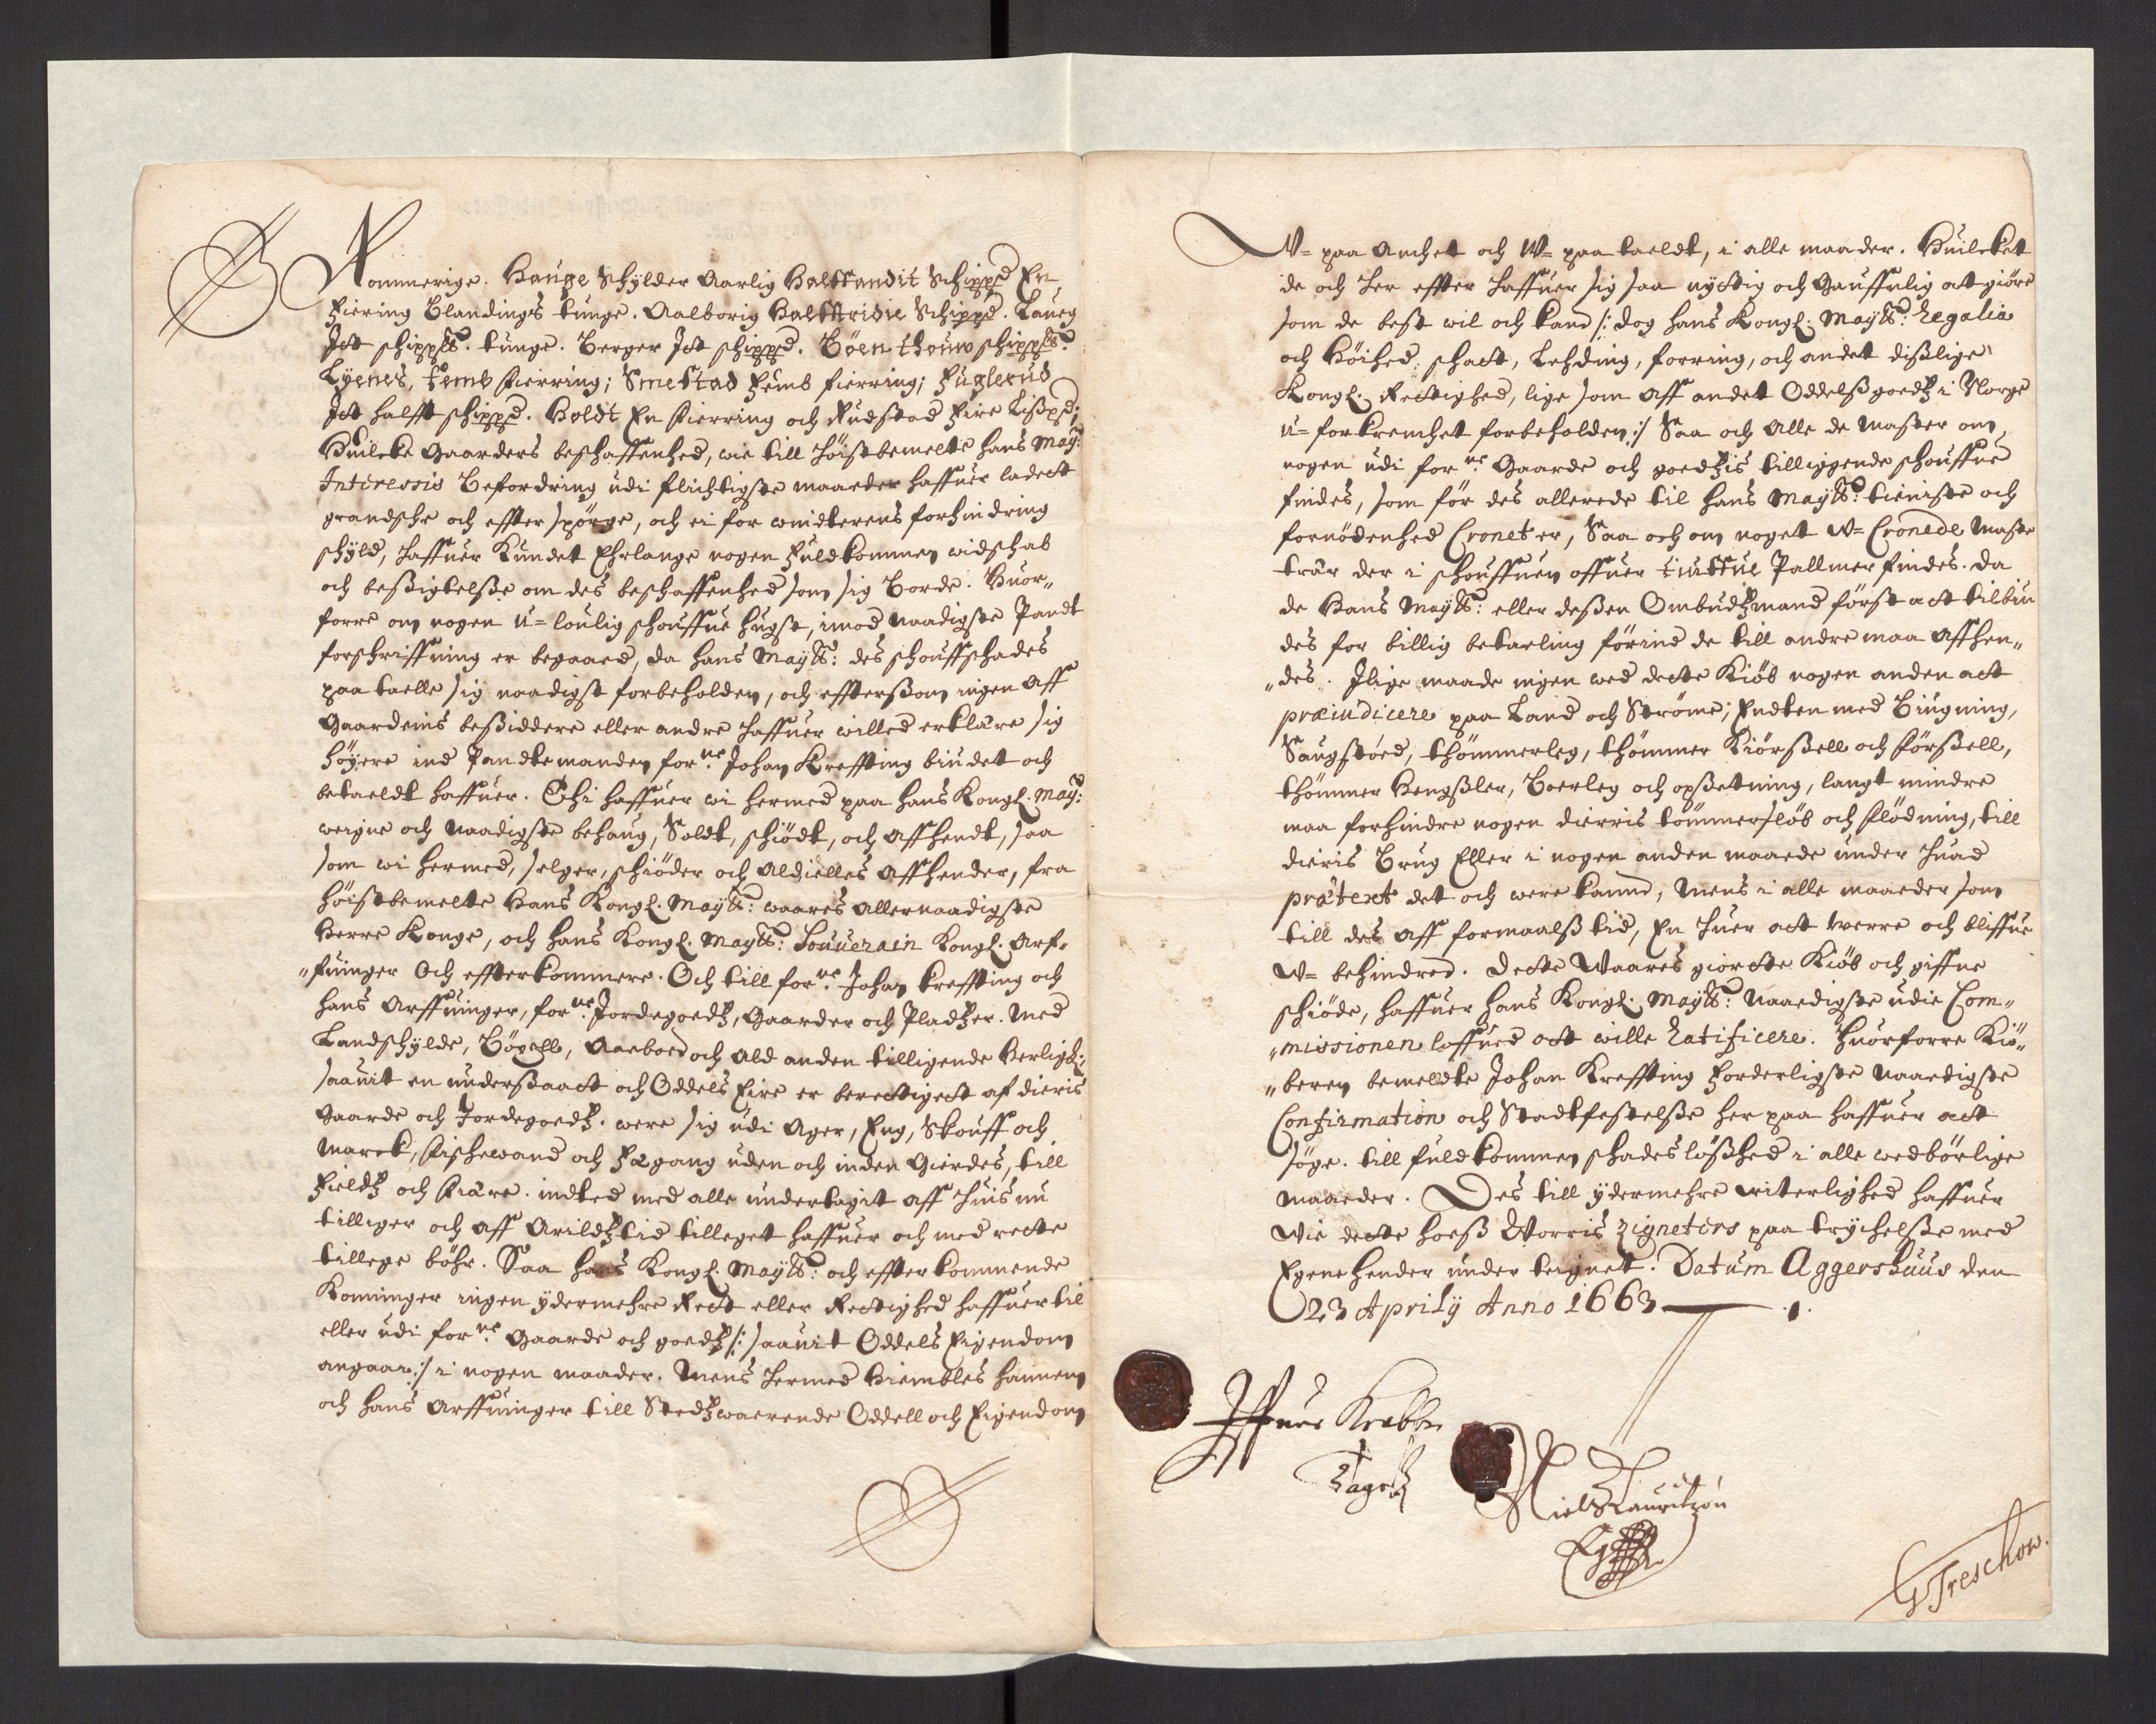 Rommerige. Hauge Schylder Aarlig Halfftandit Schippd En
Fiering Blandings tunge. Aalborig Halfftridie Schippd. Laueg
Itt schippd: tunge. Berger Itt schippd. Böen thouw schippd:
Lyenes, femb fierring; Smestad Femb fierring; Fuglerud
Itt halfft schippd. Holdt En fierring och Rudstad Fire Lißpd;
Huilcke Gaarders beschaffenhed, wie till höistbemelte hans May:
Interessis Befordring udi flichtigste maader haffuer ladett
grandsche och effter spörge, och ei for windterens forhindring
schyld, haffuer kundet Erlange nogen fuldkommen widschab
och beßigtelße om des beschaffenhed som sig Borde. Huor-
forre om nogen u=loulig schouffue hugst, imod naadigste Pandt
forschriffning er begaaed, da hans Mayts: des schouffschades
paa taelle sig naadigst forbeholden, och effterßom ingen aff
Gaardenis beßiddere eller andre haffuer willed erklære sig
höyere ind Pandtemanden forne: Johan Kreffting biudet och
betaeldt haffuer. Thi haffuer wi hermed paa hans Kongl. May:
weigne och naadigste behaug, Soldt, schiödt, och affhendt, saa
som wi hermed, selger, schiöder och Aldielles affhender, fra
höistbemelte Hans Kongl. Mayts: waares allernaadigste
Herre Konge, och hans Kongl. Mayts: Souuerain Kongl. Arf-
"fuinger Och effterkommere. Och till forne: Johan Kreffting och
hans Arffuinger, forne: Jordegoedtz, Gaarder och Pladtzer. Med
Landschylde, Böxell, Aarboed och Ald anden tilligende Herligh:
saauit en underßaatt och Oddels Eire er berettigett af dieris
Gaarde och Jordegoedtz. were sig udi Ager, Eng, Skouff och
Marck, fischewand och Fægang uden och inden Gierdes, till
Fieldtz och fiære. indted med alle undertagit aff huis nu
tilliger och aff Arildtztid tilleget haffuer och med rette
tillege böhr. Saa hans Kongl. Mayts: och effterkommende
Konninger ingen ydermehre Rett eller Rettighed haffuer til
eller udi forne: Gaarde och goedtz /: saauit Oddels Eigendom
angaar :/ i nogen maader. Mens hermed hiembles hannem
och hans Arffuinger till Stedtzwaerende Oddell och Eigendom
V= paa Anchet och V= paa taeldt, i alle maader. Huilcket
de och her effter haffuer sig saa nyttig och Gauffnlig att giöre
som de best wil och kand /: dog hans Kongl. Mayts: Regalia
och Höihed, schatt, Lehding, forring, och andet dißlige
Kongl. Rettighed, lige som aff andet Oddelßgoedtz i Norge
u=forkrenchet forbeholden :/ Saa och alle de Master om
nogen udi forne: Gaarde och goedtzis tilliggende schouffue
findes, som för des allerede til hans Mayts: tieniste och
fornödenhed Cronet er, Saa och om noget V=Cronede Maste
trær der i schouffuen offuer tiuffue Pallmer findes. da
de Hans Mayts: eller deßen Ombudtzmand först att tilbiu
des for billig betaeling förind de till andre maa affhen-
"des. Ilige maade ingen wed dette Kiöb nogen anden att
præiudicere paa Land och Ströme; Endten med Biugning,
Saugstöed, thömmerleg, thömmer Kiörßell och förßell,
thömmer Hengßler, Boerleg och opßetning, langt mindre
maa forhindre nogen dierris tömmerflöb och flödning, till
dieris Brug Eller i nogen anden maade under huad
prætext det och were kannd, Mens i alle maader som
till des aff formaalß tid, En huer att werre och bliffue
V= behindred. Dette Waares giorte Kiöb och giffne
schiöde, haffuer hans Kongl. Mayts: Naadigste udi Com-
"missionen loffued att wille ratificere. Huorforre Kiö-
"beren bemeldte Johan Kreffting forderligste Naadigste
Confirmation och Stadtfestelße her paa haffuer att
söge. till fuldkommen schadeslößhed i alle wedbörlige
maader. Des till ydermehre witerlighed haffuer
Wie dette hoeß Worris zigneters paa trychelße med
Egene Hender under teignet. Datum Aggershuus den
23 Aprily Anno 1663
Iffuer Krabbe
Niels Lauritzön
GTreschow.